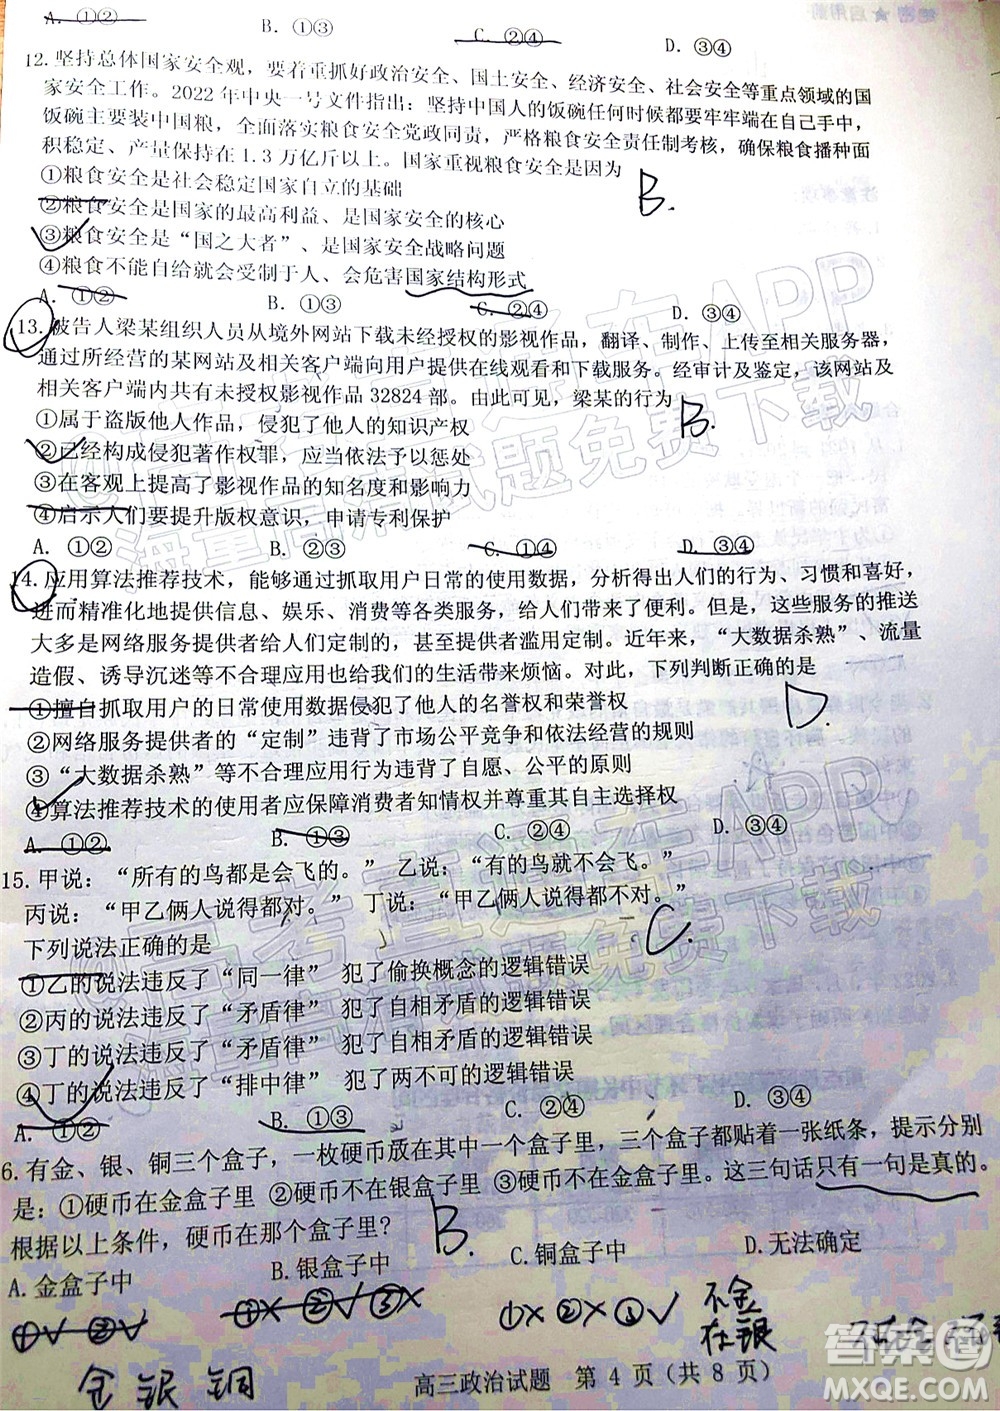 绝密★启用前
A. ①② B. ①③ C. ②④ D. ③④
12. 坚持总体国家安全观，要着重抓好政治安全、国土安全、经济安全、社会安全等重点领域的国
家安全工作。2022 年中央一号文件指出：坚持中国人的饭碗任何时候都要牢牢端在自己手中，
饭碗主要装中国粮，全面落实粮食安全党政同责，严格粮食安全责任制考核，确保粮食播种面
积稳定、产量保持在 1.3 万亿斤以上。国家重视粮食安全是因为
B.
①粮食安全是社会稳定国家自立的基础
②粮食安全是国家的最高利益、是国家安全的核心
③粮食安全是“国之大者”、是国家安全战略问题
④粮食不能自给就会受制于人、会危害国家结构形式
A. ①② B. ①③ C. ②④ D. ③④
13. 被告人梁某组织人员从境外网站下载未经授权的影视作品，翻译、制作、上传至相关服务器，
通过所经营的某网站及相关客户端向用户提供在线观看和下载服务。经审计及鉴定，该网站及
相关客户端内共有未授权影视作品 32824 部。由此可见，梁某的行为
B.
①属于盗版他人作品，侵犯了他人的知识产权
②已经构成侵犯著作权罪，应当依法予以惩处
③在客观上提高了影视作品的知名度和影响力
④启示人们要提升版权意识，申请专利保护
A. ①② B. ②③ C. ①④ D. ③④
14. 应用算法推荐技术，能够通过抓取用户日常的使用数据，分析得出人们的行为、习惯和喜好，
进而精准化地提供信息、娱乐、消费等各类服务，给人们带来了便利。但是，这些服务的推送
大多是网络服务提供者给人们定制的，甚至提供者滥用定制。近年来，“大数据杀熟”、流量
造假、诱导沉迷等不合理应用也给我们的生活带来烦恼。对此，下列判断正确的是
D
①擅自抓取用户的日常使用数据侵犯了他人的名誉权和荣誉权
②网络服务提供者的“定制”违背了市场公平竞争和依法经营的规则
③“大数据杀熟”等不合理应用行为违背了自愿、公平的原则
④算法推荐技术的使用者应保障消费者知情权并尊重其自主选择权
A. ①② B. ①③ C. ②④ D. ③④
15. 甲说：“所有的鸟都是会飞的。” 乙说：“有的鸟就不会飞。”
丙说：“甲乙俩人说得都对。” 丁说：“甲乙俩人说得都不对。”
C.
下列说法正确的是
①乙的说法违反了“同一律” 犯了偷换概念的逻辑错误
②丙的说法违反了“矛盾律” 犯了自相矛盾的逻辑错误
③丁的说法违反了“矛盾律” 犯了自相矛盾的逻辑错误
④丁的说法违反了“排中律” 犯了两不可的逻辑错误
A. ①② B. ①③ C. ②④ D. ③④
6. 有金、银、铜三个盒子，一枚硬币放在其中一个盒子里。三个盒子都贴着一张纸条，提示分别
是：①硬币在金盒子里 ②硬币不在银盒子里 ③硬币不在金盒子里。这三句话只有一句是真的。
根据以上条件，硬币在那个盒子里？
B.
A. 金盒子中 B. 银盒子中 C. 铜盒子中 D. 无法确定
①√ ②√ ①× ②√ ③× ①× ②× ③√ 不金
在银
金 银 铜
高三政治试题 第 4 页（共 8 页）
@高考直通车APP
海量高清试题免费下载
@高考直通车APP
海量高清试题免费下载
答案圈
MXQE.COM